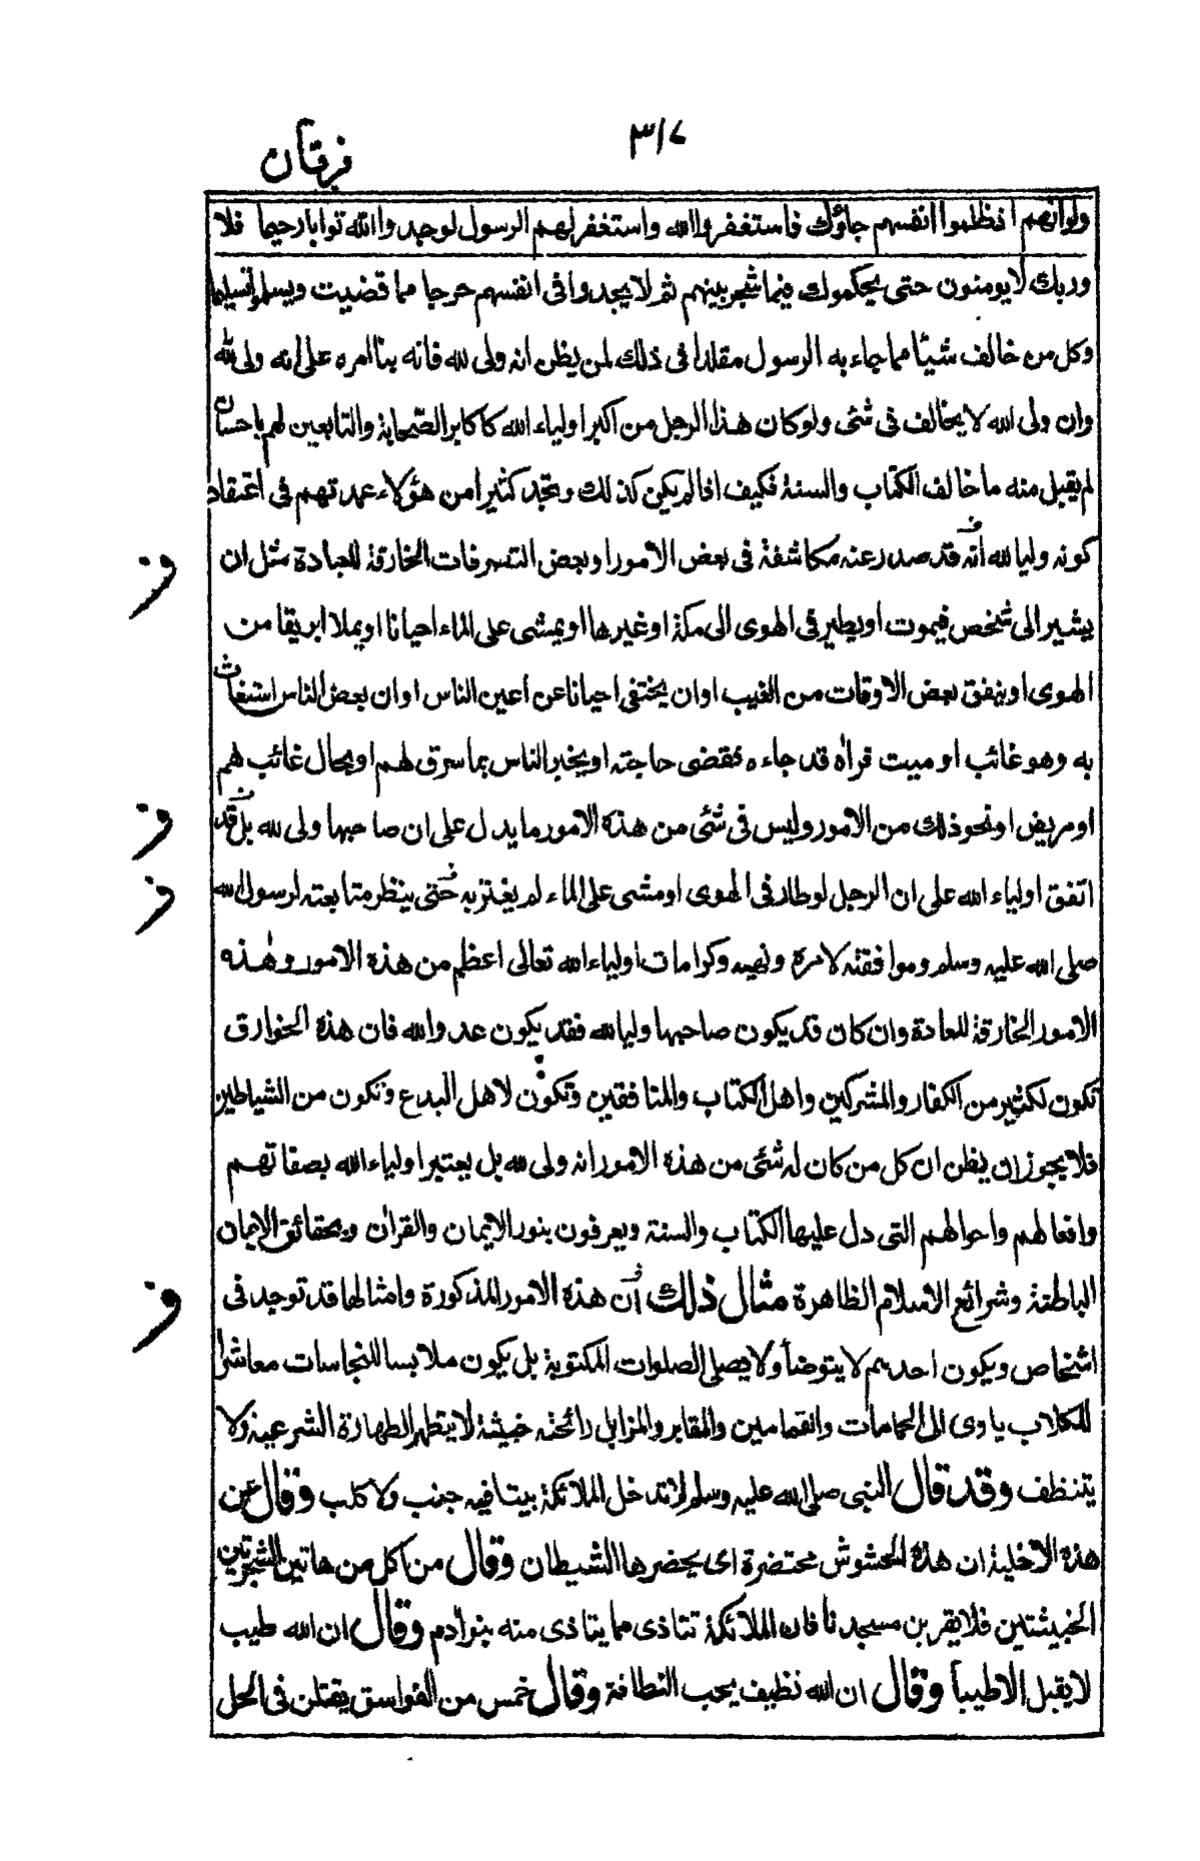 ٣١٧
فرقان
ولو انهم اذ ظلموا انفسهم جاؤك فاستغفروا الله واستغفر لهم الرسول لوجدوا الله توابا رحيما فلا
وربك لا يومنون حتى يحكموك فيما شجر بينهم ثم لا يجدوا فى انفسهم حرجا مما قضيت ويسلموا تسليما
وكل من خالف شيئا مما جاء به الرسول مقلدا فى ذلك لمن يظن انه ولى لله فانه بنا امره على انه ولى لله
وان ولى الله لا يخالف فى شئى ولو كان هذا الرجل من اكبر اولياء الله كاكابر الصحابة والتابعين لهم باحسان
لم يقبل منه ما خالف الكتاب والسنة فكيف اذا لم يكن كذلك وتجد كثيرا من هؤلاء عمدتهم فى اعتقاد
كونه وليا لله انه قد صدر عنه مكاشفة فى بعض الامور او بعض التصرفات الخارقة للعادة مثل ان
يشير الى شخص فيموت او يطير فى الهوى الى مكة او غيرها او يمشى على الماء احيانا او يملا ابريقا من
الهوى او ينفق بعض الاوقات من الغيب او ان يختفى احيانا عن اعين الناس او ان بعض الناس استغاث
به وهو غائب او ميت فراه قد جاءه فقضى حاجته او يخبر الناس بما سرق لهم او بحال غائب لهم
او مريض او نحو ذلك من الامور وليس فى شئى من هذه الامور ما يدل على ان صاحبها ولى لله بل قد
اتفق اولياء الله على ان الرجل لو طار فى الهوى او مشى على الماء لم يغتر به حتى ينظر متابعته لرسول الله
صلى الله عليه وسلم وموافقته لامره ونهيه وكرامات اولياء الله تعالى اعظم من هذه الامور وهذه
الامور الخارقة للعادة وان كان قد يكون صاحبها وليا لله فقد يكون عدوا لله فان هذه الخوارق
تكون لكثير من الكفار والمشركين واهل الكتاب والمنافقين وتكون لاهل البدع وتكون من الشياطين
فلا يجوز ان يظن ان كل من كان له شئى من هذه الامور انه ولى لله بل يعتبر اولياء الله بصفاتهم
وافعالهم واحوالهم التى دل عليها الكتاب والسنة ويعرفون بنور الايمان والقران وبحقائق الايمان
الباطنة وشرائع الاسلام الظاهرة مثال ذلك ان هذه الامور المذكورة وامثالها قد توجد فى
اشخاص ويكون احدهم لا يتوضأ ولا يصلى الصلوات المكتوبة بل يكون ملابسا للنجاسات معاشرا
للكلاب ياوى الى الحمامات والقمامين والمقابر والمزابل رائحته خبيثة لا يتطهر الطهارة الشرعية ولا
يتنظف وقد قال النبى صلى الله عليه وسلم لا تدخل الملائكة بيتا فيه جنب ولا كلب وقال عن
هذه الاخلية ان هذه الحشوش محتضرة اى يحضرها الشيطان وقال من اكل من هاتين الشجرتين
الخبيثتين فلا يقربن مسجدنا فان الملائكة تتاذى مما يتاذى منه بنو ادم وقال ان الله طيب
لا يقبل الا طيبا وقال ان الله نظيف يحب النظافة وقال خمس من الفواسق يقتلن فى الحل